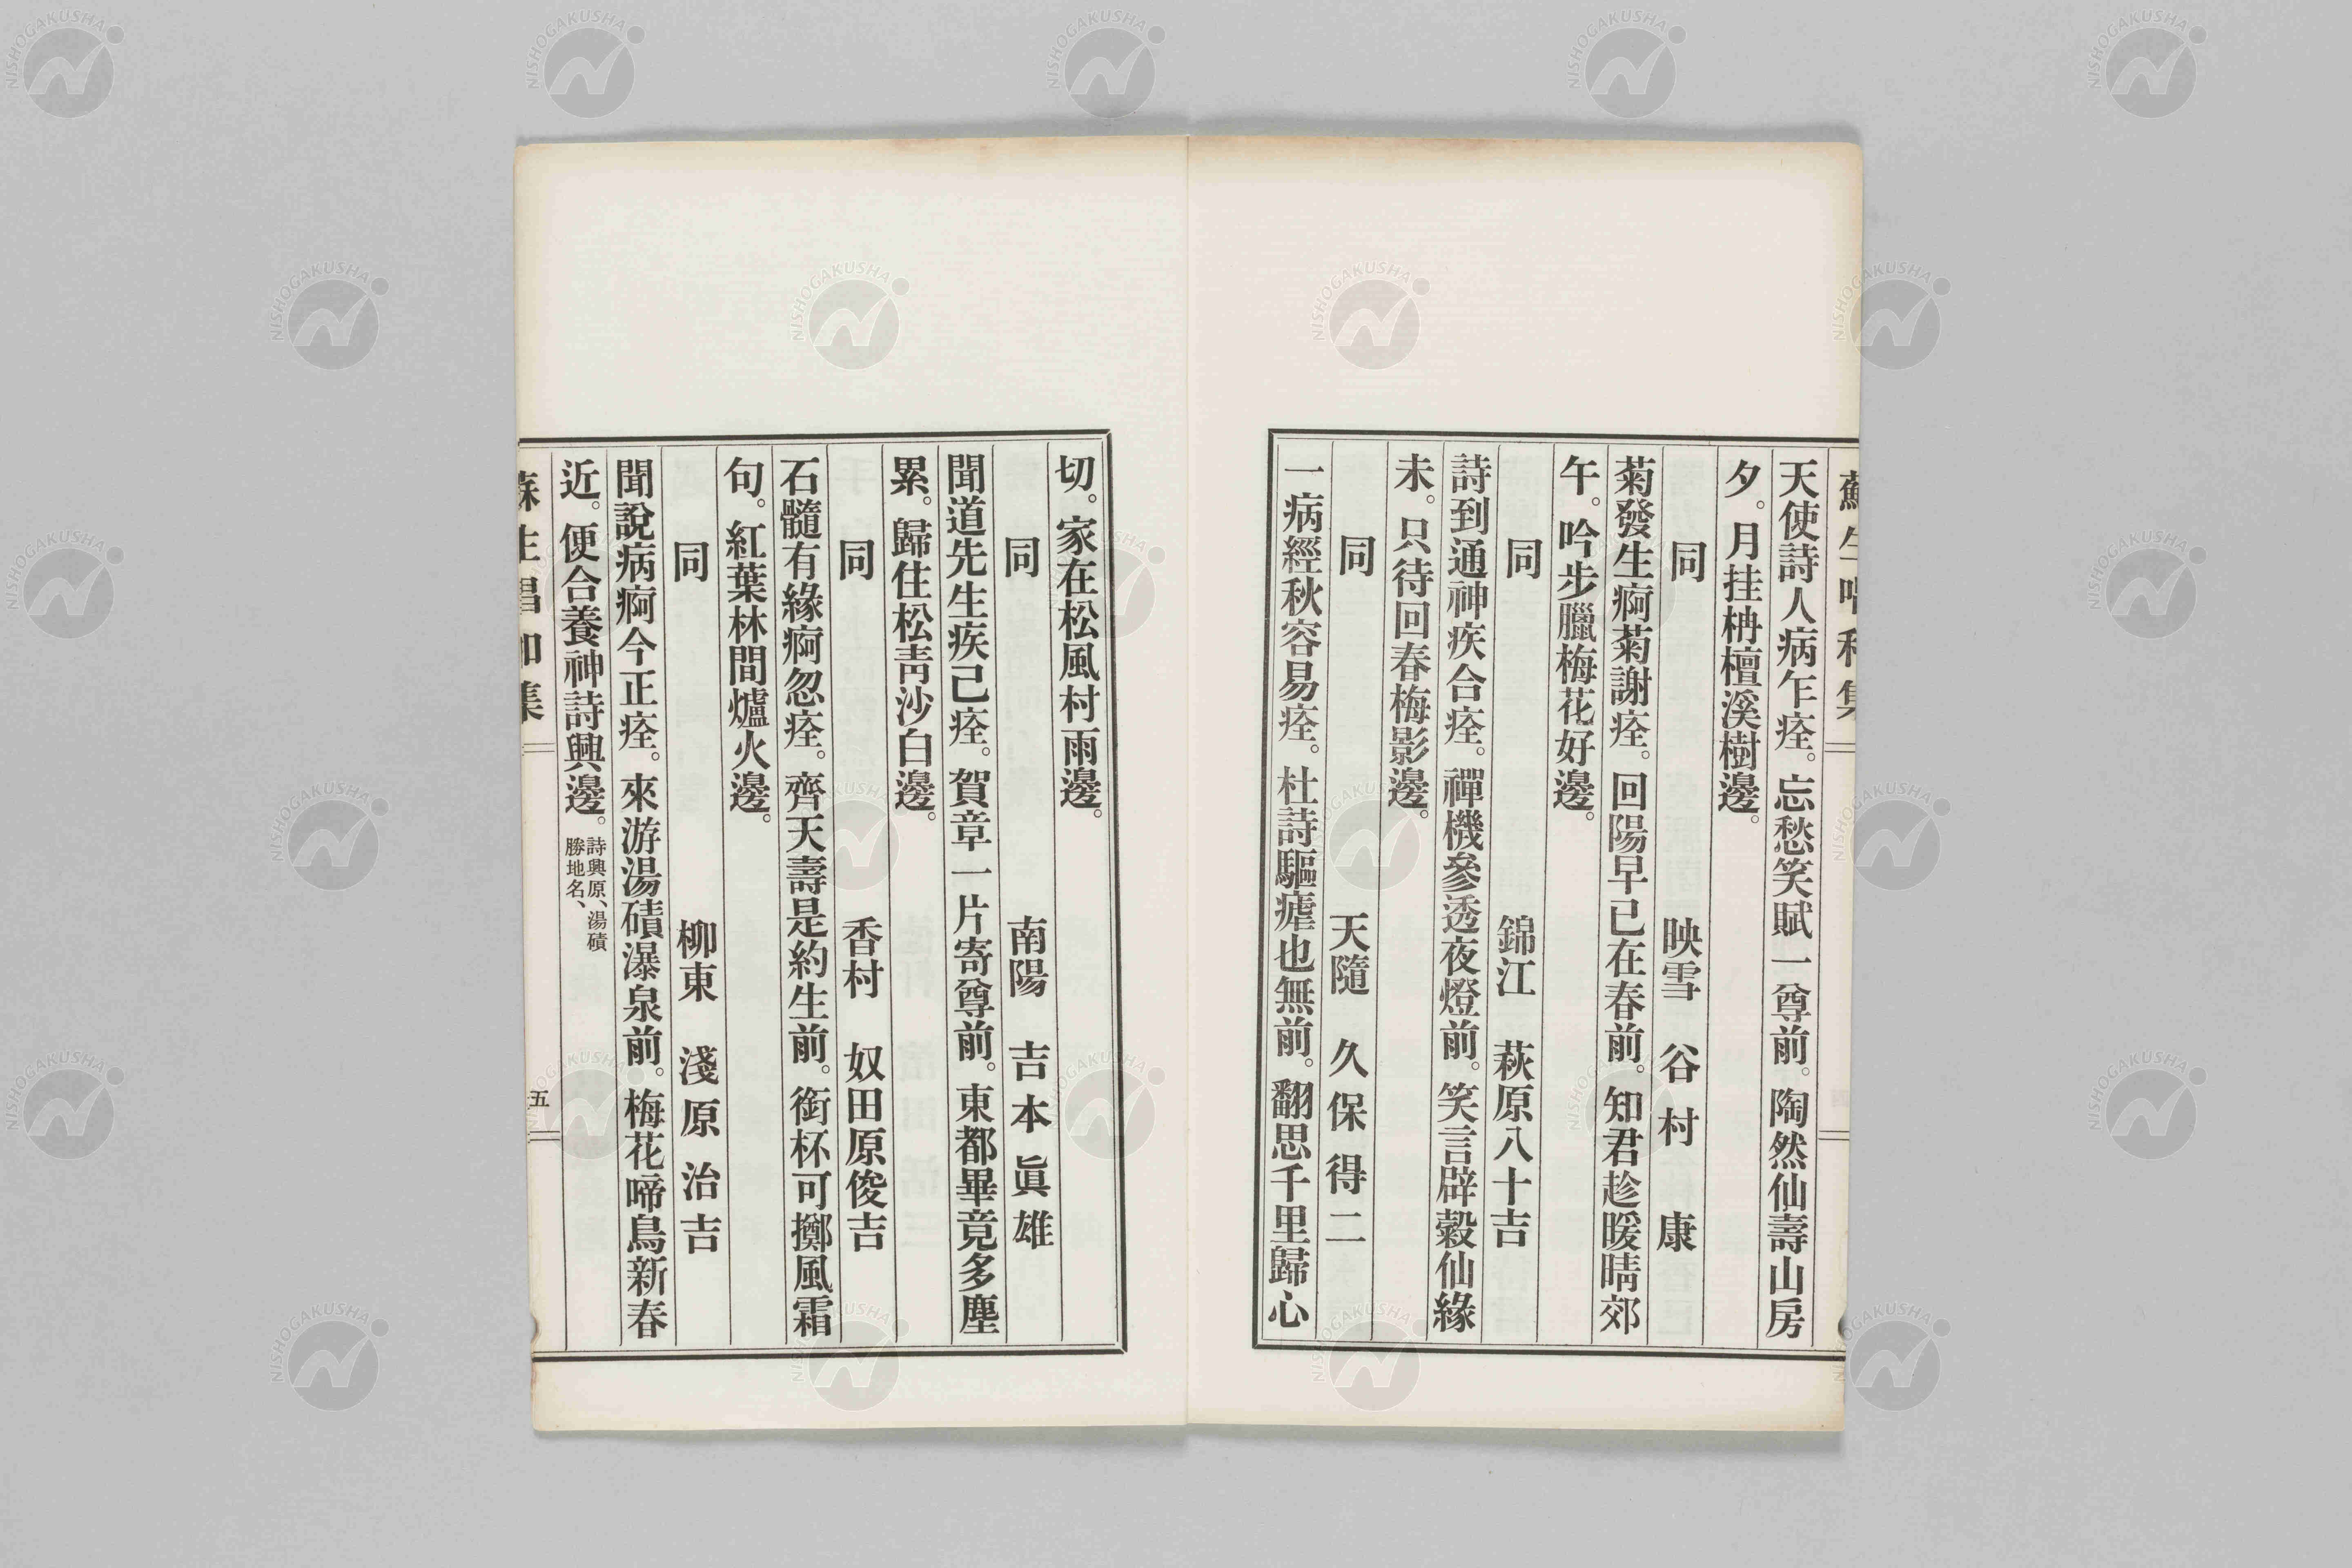 蘇生唱和集
天使詩人病乍痊。忘愁笑賦一尊前。陶然仙壽山房
夕。月挂栴檀溪樹邊。
同 映雪 谷村 康
菊發生痾菊謝痊。回陽早已在春前。知君趁暖晴郊
午。吟步臘梅花好邊。
同 錦江 萩原八十吉
詩到通神疾合痊。禪機參透夜燈前。笑言辟穀仙緣
未。只待回春梅影邊。
同 天隨 久保得二
一病經秋容易痊。杜詩驅瘧也無前。翻思千里歸心
切。家在松風村雨邊。
同 南陽 吉本眞雄
聞道先生疾已痊。賀章一片寄尊前。東都畢竟多塵
累。歸住松靑沙白邊。
同 香村 奴田原俊吉
石髓有緣痾忽痊。齊天壽是約生前。銜杯可擲風霜
句。紅葉林間爐火邊。
同 柳東 淺原治吉
聞說病痾今正痊。來游湯磧瀑泉前。梅花啼鳥新春
近。便合養神詩興邊。
詩興原、湯磧
勝地名、
蘇生唱和集
五
NISHOGAKUSHA